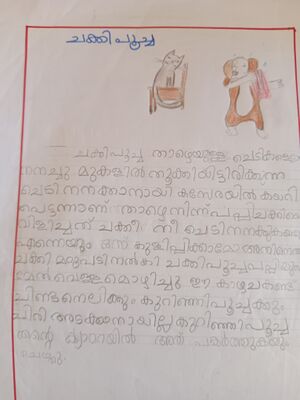 ചക്കിപൂച്ച
ചക്കിപൂച്ച താഴെയുള്ള ചെടികളെല്ലാം
നനച്ചു മുകളിൽ തൂക്കിയിട്ടിരിക്കുന്ന
ചെടി നനക്കാനായി കസേരയിൽ കയറി
പെട്ടന്നാണ് താഴെനിന്ന് പപ്പിചക്കിയെ
വിളിച്ചത് ചക്കീ നീ ചെടി നനക്കുകയാണോ
എന്നെയും ഒന്ന് കുളിപ്പിക്കാമോ അതിനെന്താ
ചക്കി മറുപടി നൽകി ചക്കിപൂച്ച പപ്പിയുടെ
മേൽ വെള്ളമൊഴിച്ചു ഈ കാഴ്ചകണ്ട്
ചിണ്ടനെലിക്കും കുറിഞ്ഞിപൂച്ചക്കും
ചിരി അടക്കാനായില്ല കുറിഞ്ഞിപൂച്ച
തന്റെ ക്യാമറയിൽ അത് പകർത്തുകയും
ചെയ്തു.